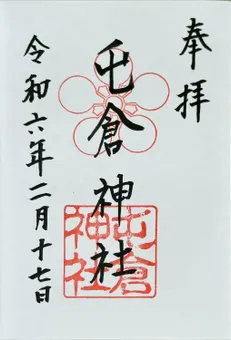 奉拝
屯倉神社
令和六年二月十七日
屯倉
神社